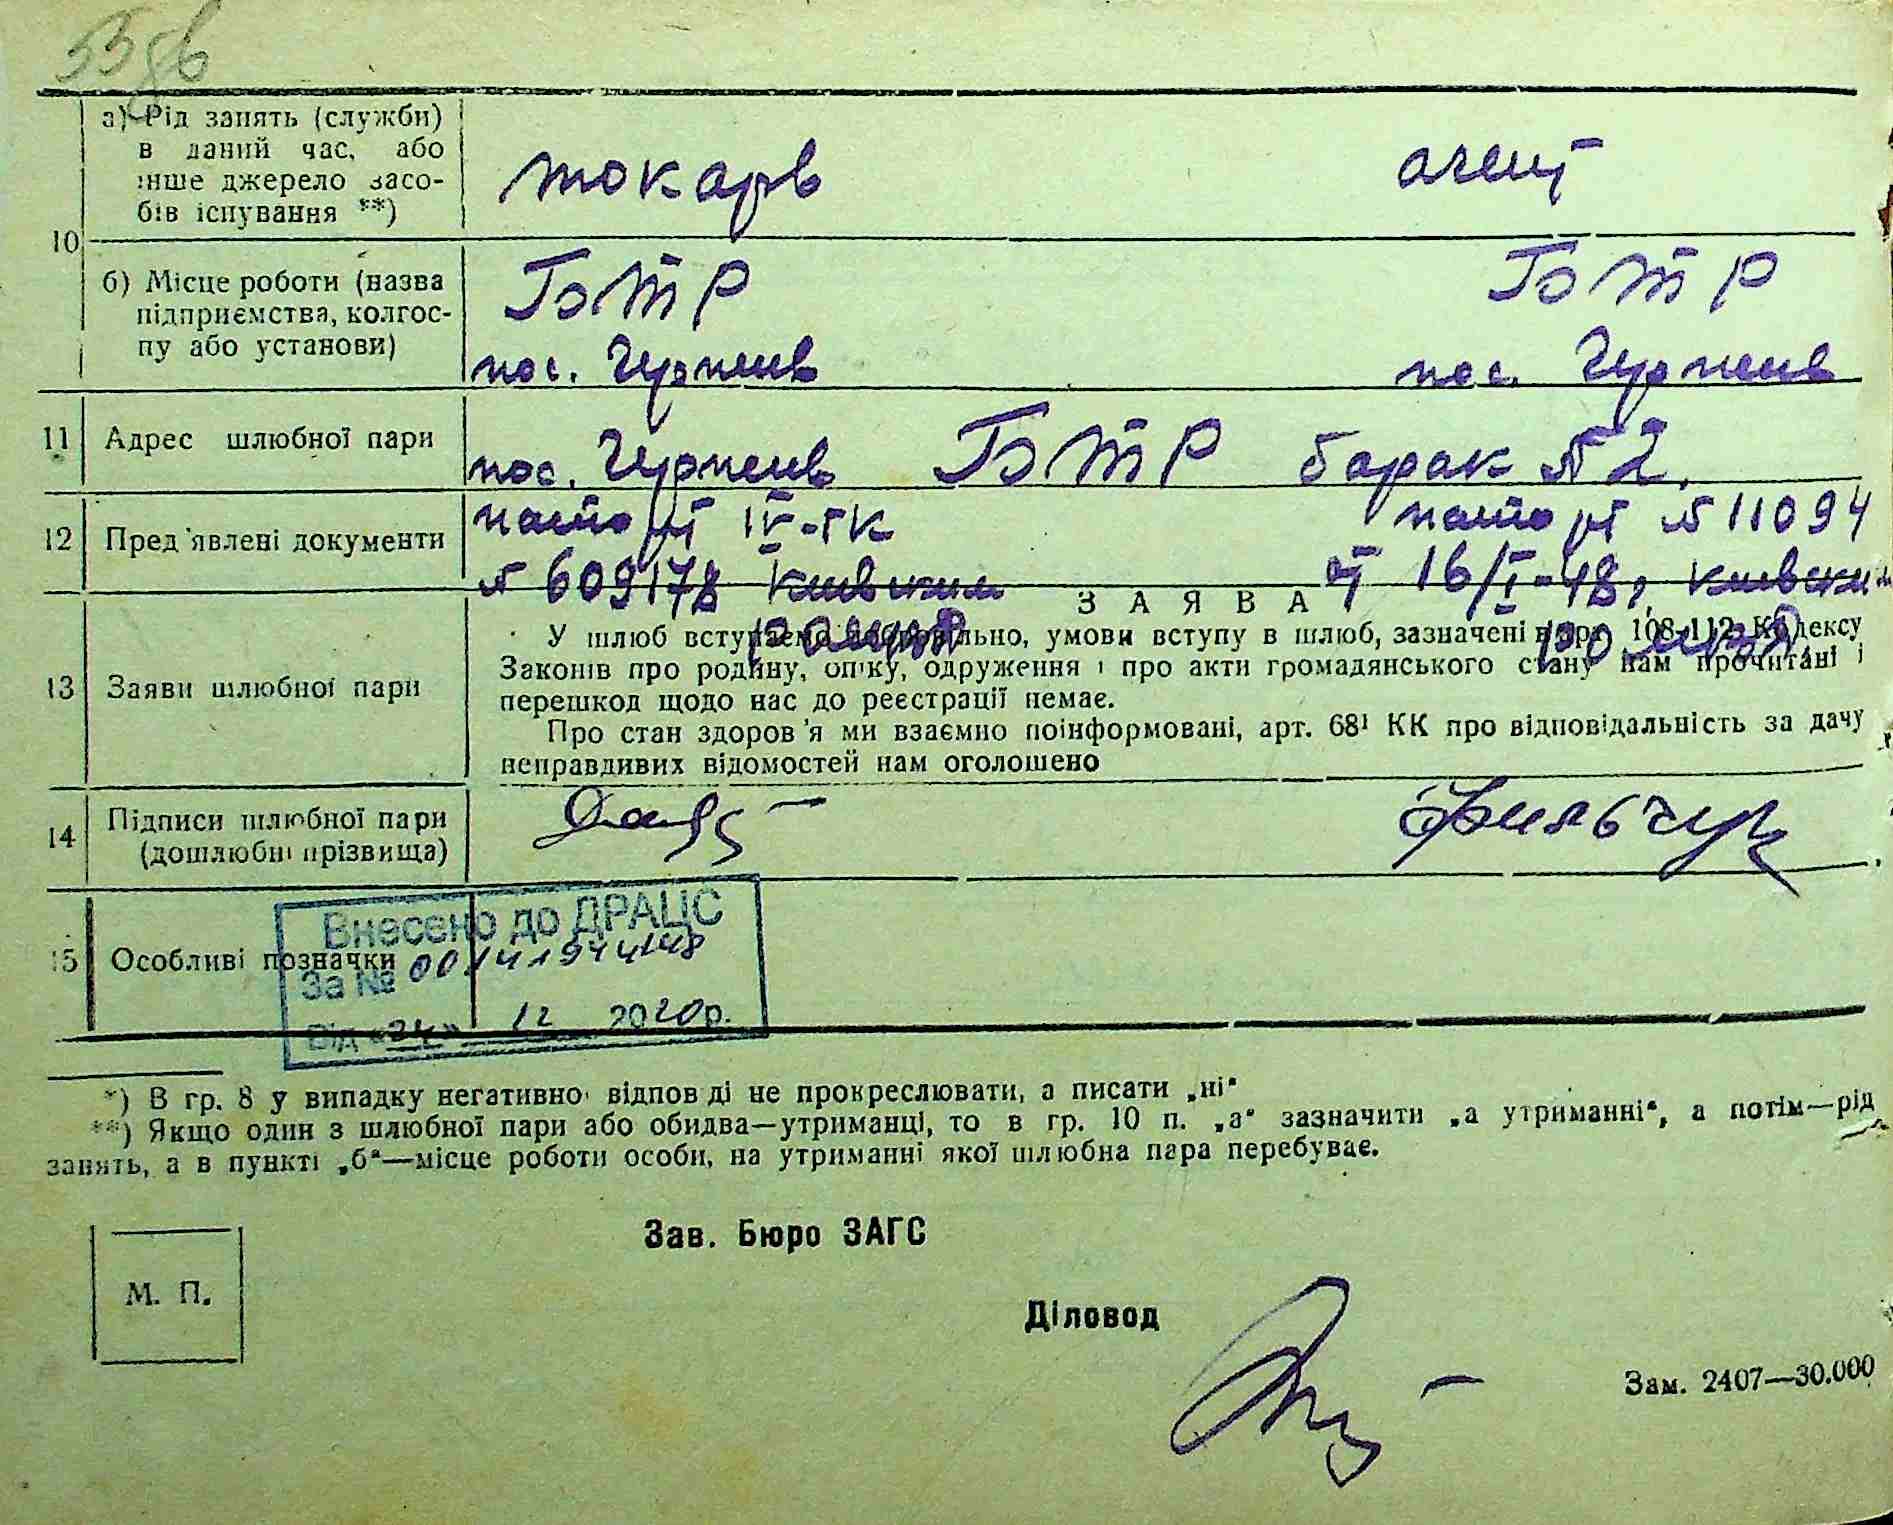 а) Рід занять (служби)
в даний час, або
інше джерело засо-
бів існування **)
токарь
агент
10
б) Місце роботи (назва
підприємства, колгос-
пу або установи)
БТР
БТР
пос.
пос.
11 Адрес шлюбної пари
пос. БТР барак № 2.
12 Пред'явлені документи
паспорт IV-ГК
паспорт № 11094
№ 609178 Киевским
от 16/I-48, Киевским
13 Заяви шлюбної пари
ЗАЯВА
У шлюб вступаємо добровільно, умови вступу в шлюб, зазначені в арт. 108-112 Кодексу
Законів про родину, опіку, одруження і про акти громадянського стану нам прочитані і
перешкод щодо нас до реєстрації немає.
Про стан здоров'я ми взаємно поінформовані, арт. 68¹ КК про відповідальність за дачу
неправдивих відомостей нам оголошено
14 Підписи шлюбної пари
(дошлюбні прізвища)
Фильчук
15 Особливі позначки
Внесено до ДРАЦС
За № 00141944148
Від «24» 12 2020р.
*) В гр. 8 у випадку негативної відповіді не прокреслювати, а писати „ні“
**) Якщо один з шлюбної пари або обидва—утриманці, то в гр. 10 п. „а“ зазначити „а утриманні“, а потім—рід
занять, а в пункті „б“—місце роботи особи, на утриманні якої шлюбна пара перебуває.
Зав. Бюро ЗАГС
М. П.
Діловод
Зам. 2407—30.000